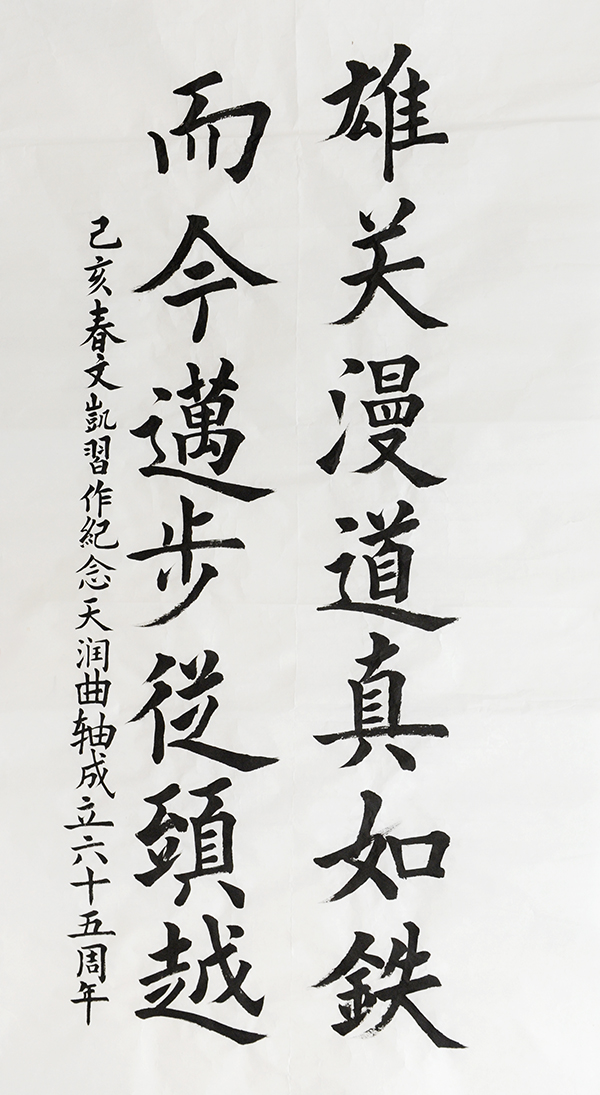 雄关漫道真如鉄
而今邁步從頭越
己亥春文凱習作紀念天润曲轴成立六十五周年